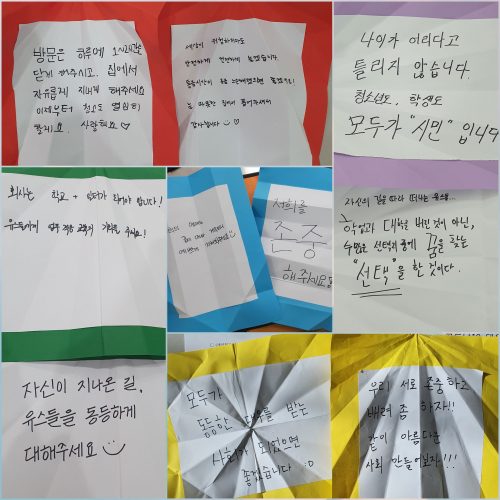 방문은 하루에 1시간만
닫게 해주시고. 집에서
자유롭게 지내게 해주세요
이제부터 청소도 열심히
할게요. 사랑해요♡
세상이 위험하더라도
안전하게
감사합니다
나이가 어리다고
틀리지 않습니다.
청소년도, 학생도
모두가 "시민" 입니다
회사는 학교 + 일터가 되어야 합니다!
유스들에게 업무 적응 교육의 기회를 주세요!
저희를
존중
해주세요
자신의 길을 따라 떠나는 유스들...
학업과 대학을 버린 것이 아닌,
수많은 선택지 중에 꿈을 찾는
"선택"을 한 것이다.
자신이 지나온 길,
유스들을 동등하게
대해주세요
모두가
동등한 대우를 받는
사회가 되었으면
좋겠습니다 :D
우리 서로 존중하고
배려 좀 하자!!
같이 아름다운
사회 만들어보자!!!